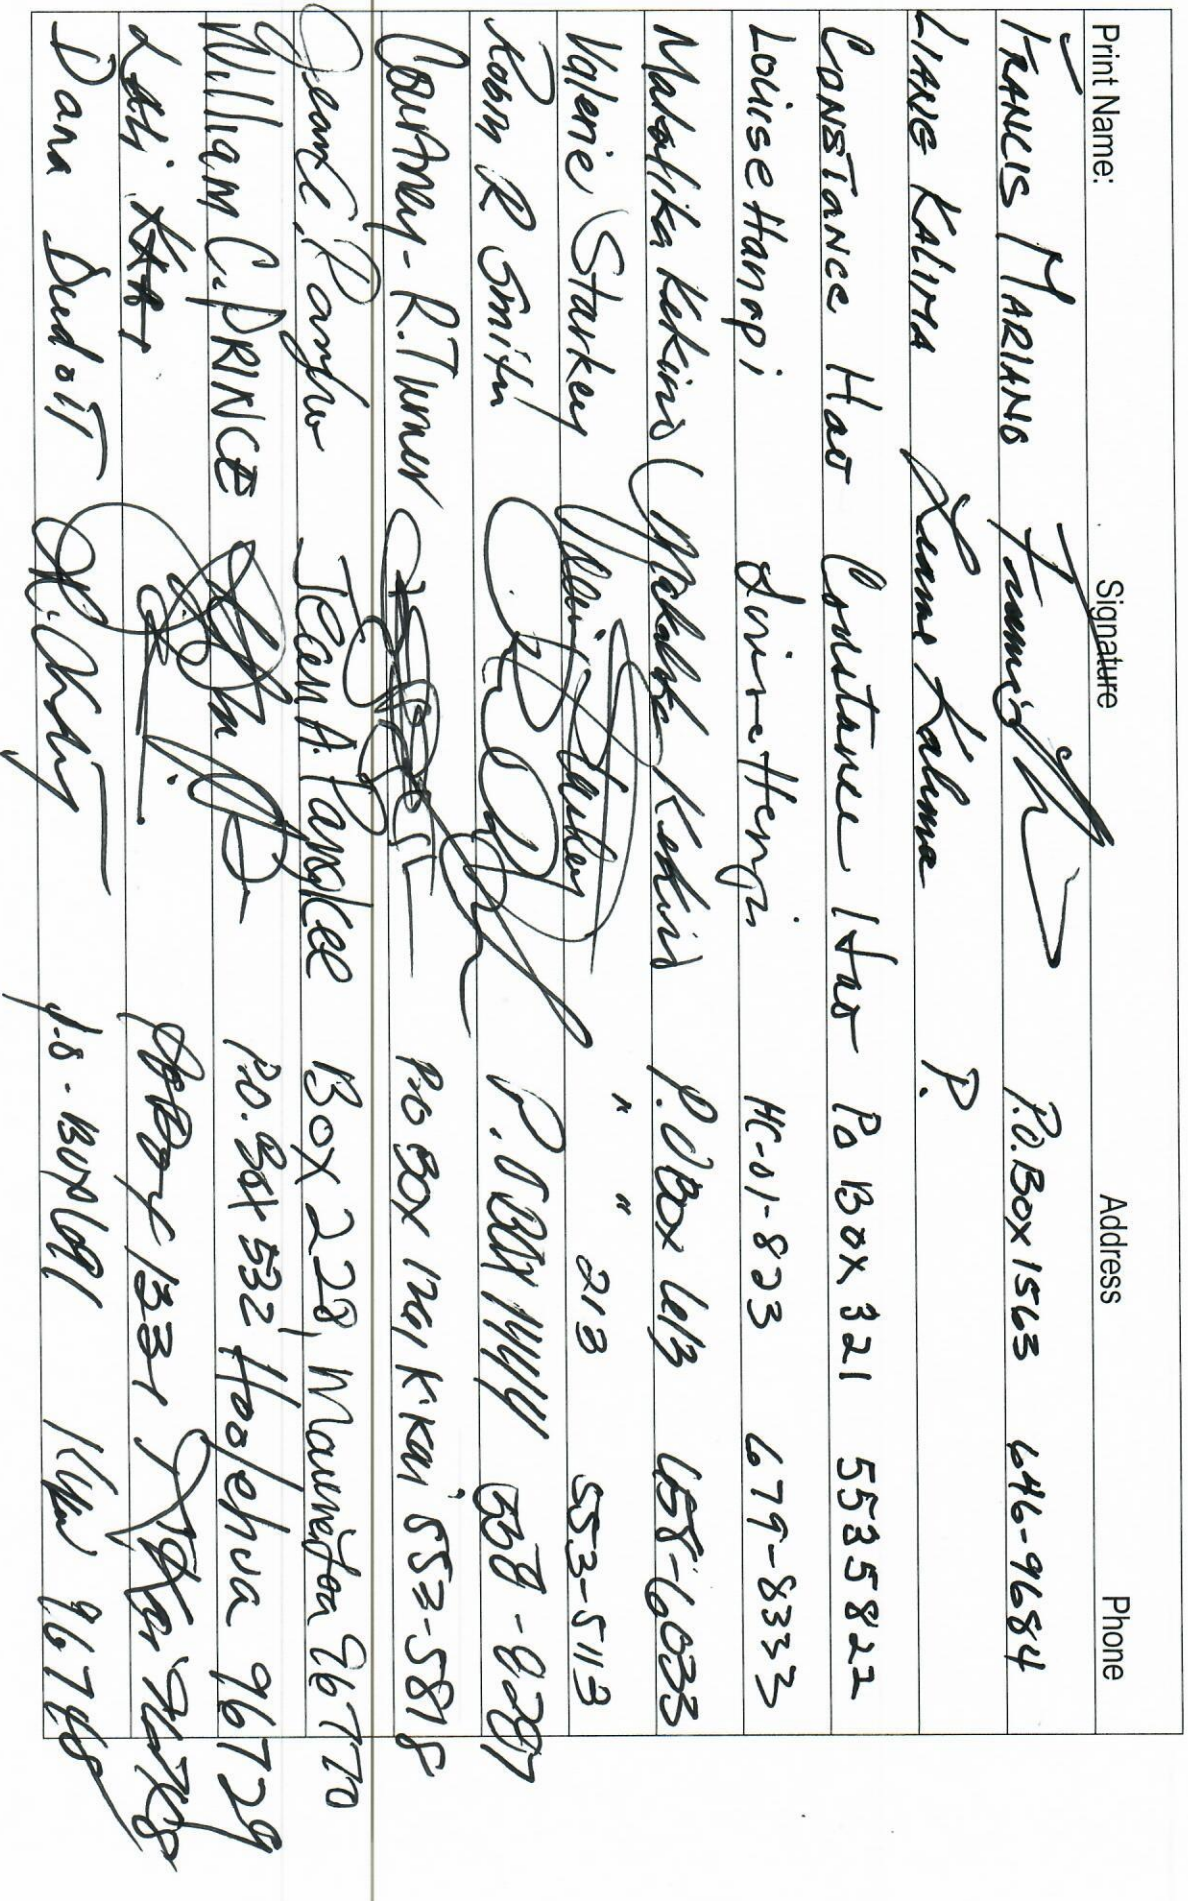 Print Name: Signature Address Phone
FRANCIS MARIANO P.O.BOX 1563 646-9684
LIANE KALIMA Liane Kalima P.
CONSTANCE HAO Constance Hao PO BOX 321 5535822
Louise Hanapi HC-01-823 679-8333
Mahalika Kekino Mahalika Kekino P.O Box 613 658-6033
Valerie Starkey Valerie Starkey " " 213 553-5113
Robin R Smith P.O BOX 1414
Courtney-R.Turner PO BOX 1261 K'Kai 553-5818
Jean A. Panglee Box 228, Maunaloa 96770
William C. PRINCE P.O. Box 532 Hoolehua 96729
Box 1331
Dana Dudoit P.O. Box 1691 96748